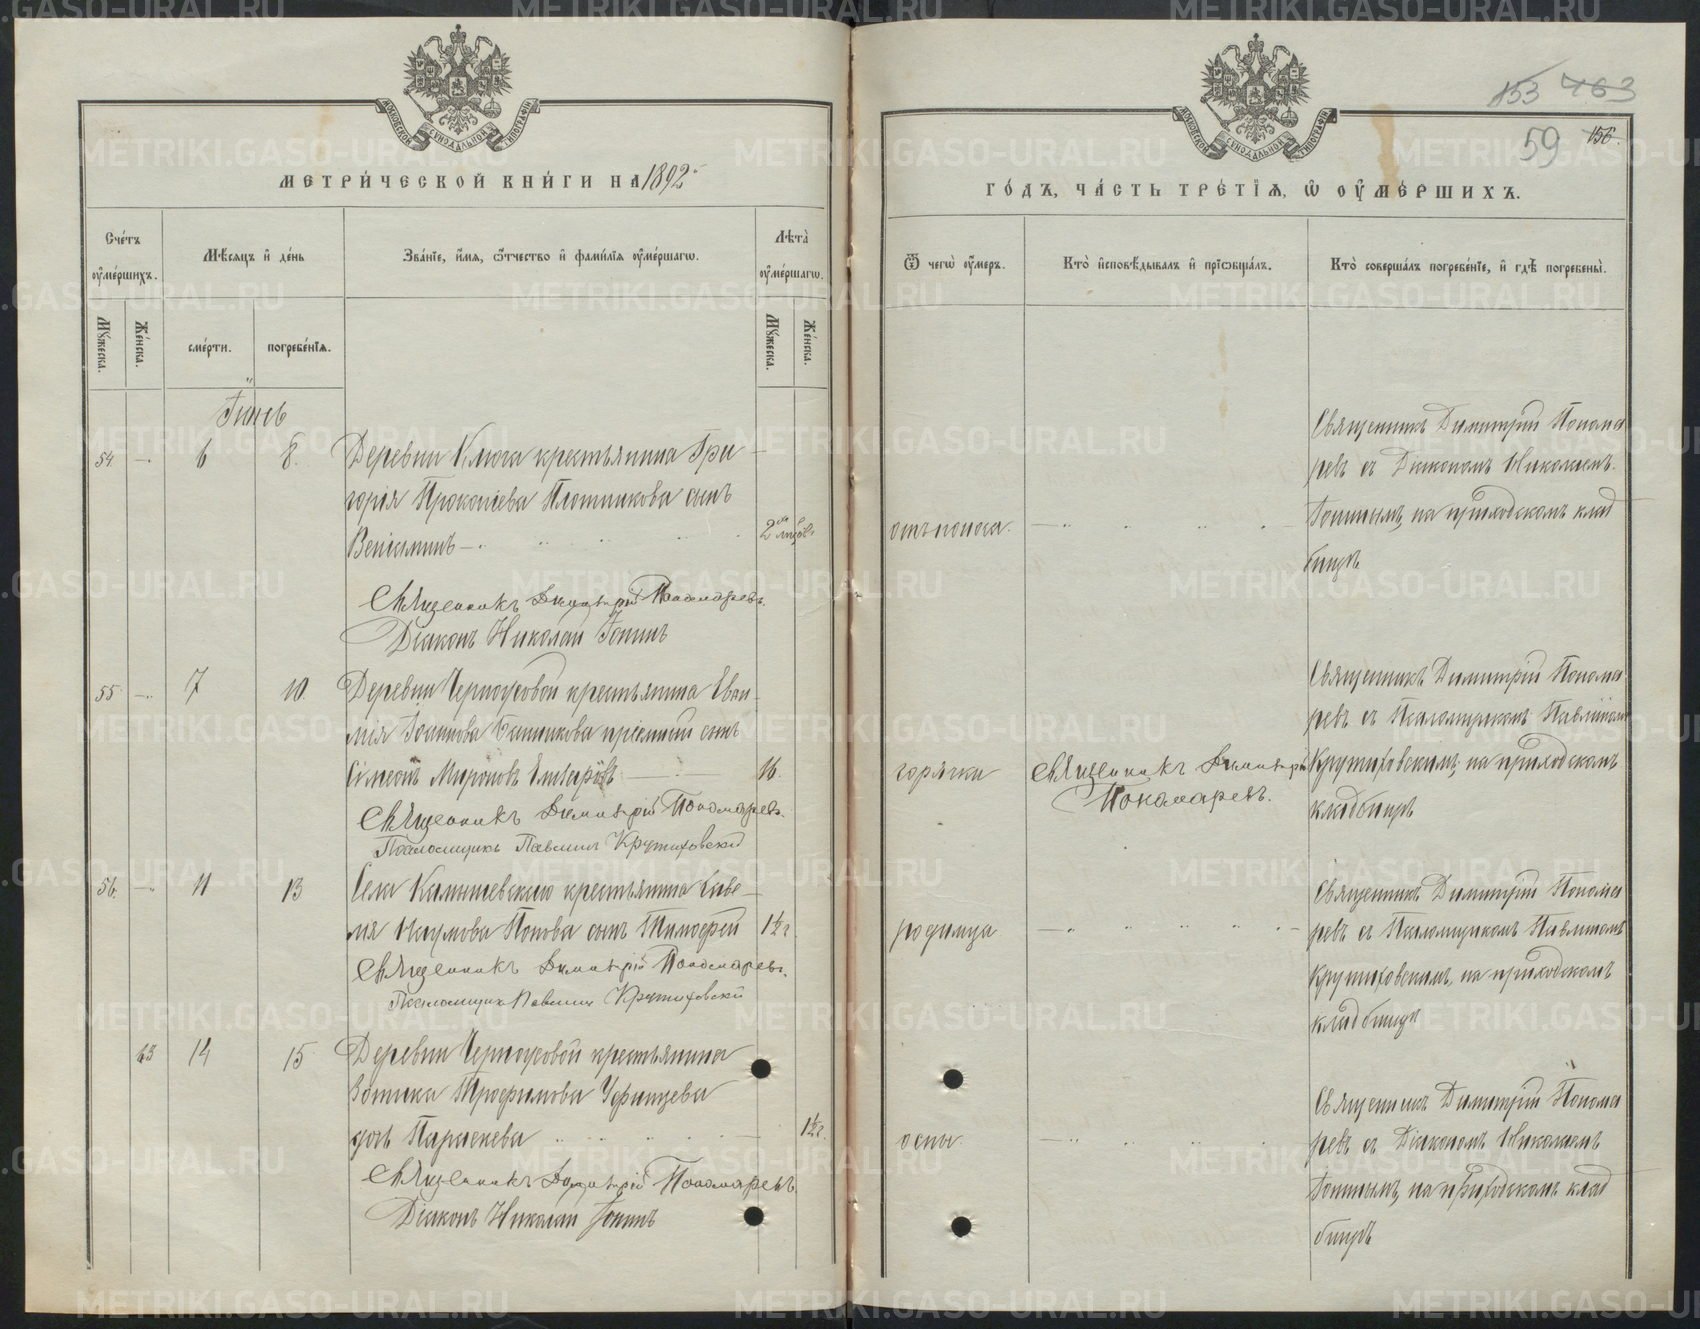 МЕТРИ́ЧЕСКОЙ КНИ́ГИ НА 1892
Сче́тъ ᲂу҆ме́ршихъ.
Мѣ́сяцъ и҆ де́нь
Зва́нїе, и҆́мѧ, ѻ҆́тчество и҆ фами́лїѧ ᲂу҆ме́ршагѡ.
Лѣ̑та ᲂу҆ме́ршагѡ.
Мꙋ́жеска.
Же́нска.
сме́рти.
погребе́нїѧ.
Мꙋ́жеска.
Же́нска.
Іюнь
54 — 6 8. Деревни Ключа крестьянина Гри
горія Прокопіева Плотникова сынъ
Веніаминъ
Священникъ Димитрій Пономаревъ.
Діаконъ Николай Іонинъ
55 — 7 10 Деревни Черноусовой крестьянина Еван
Іоаннова пріемный сынъ
Симеонъ Мироновъ 16.
Священникъ Димитрій Пономаревъ.
Псаломщикъ Павлинъ Крутиховскій
56. — 11 13 Села Камышевскаго крестьянина Саве
лія Наумова Попова сынъ Тимофей 1½ г
Священникъ Димитрій Пономаревъ.
Псаломщикъ Павлинъ Крутиховскій
63 14 15 Деревни Черноусовой крестьянина
Зотика Трофимова Уфинцева
дочь Параскева 1½ г.
Священникъ Димитрій Пономаревъ.
Діаконъ Николай Іонинъ
153 763
59 156.
ГО́ДЪ, ЧА́СТЬ ТРЕ́ТЇѦ, Ѽ ОУ҆МЕ́РШИХЪ.
Ѿ чегѡ̀ ᲂу҆́меръ.
Кто̀ и҆сповѣ́дывалъ и҆ прїѡбща́лъ.
Кто̀ соверша́лъ погребе́нїе, и҆ гдѣ̀ погребены̀.
отъ поноса.
Священникъ Димитрій Понома
ревъ съ Діакономъ Николаемъ
Іонинымъ, на приходскомъ клад
бищѣ
горячки
Священникъ Димитрій
Пономаревъ.
Священникъ Димитрій Понома
ревъ съ Псаломщикомъ Павлиномъ
Крутиховскимъ, на приходскомъ
кладбищѣ
родимца
Священникъ Димитрій Понома
ревъ съ Псаломщикомъ Павлиномъ
Крутиховскимъ, на приходскомъ
кладбищѣ
оспы
Священникъ Димитрій Понома
ревъ съ Діакономъ Николаемъ
Іонинымъ, на приходскомъ клад
бищѣ
METRIKI.GASO-URAL.RU